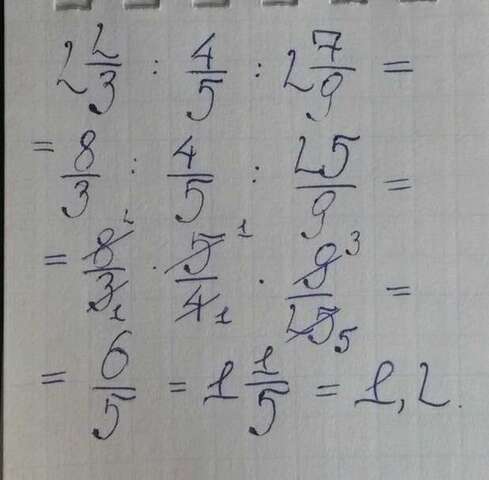 2 2/3 : 4/5 : 2 7/9 =
= 8/3 : 4/5 : 25/9 =
= 8 2/3 1 · 5 1/4 1 · 9 3/25 5 =
= 6/5 = 1 1/5 = 1,2.